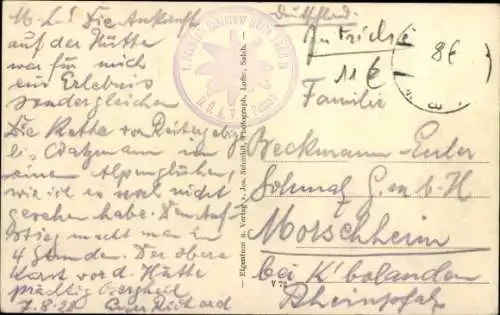 M. L! Die Ankunft
auf der Hütte
war für mich
ein Erlebnis
sondergleichen
Die Kette von Reitergebg
bis Watzmann im
einem Alpenglühen,
wie ich es noch nicht
gesehen habe. Den Auf-
stieg macht man in
4 Stunden. Der obere
Karst vor d. Hütte
prächtig
7.8.28 Euer Richard
– Eigentum u. Verlag v. Jos. Schmidt, Photograph, Lofer, Salzb. –
V 72
Deutschland.
11 €
8€
Familie
Beckmann-Euler
Schmalz G.m.b.H
Morschheim
bei K'bolanden
Rheinpfalz